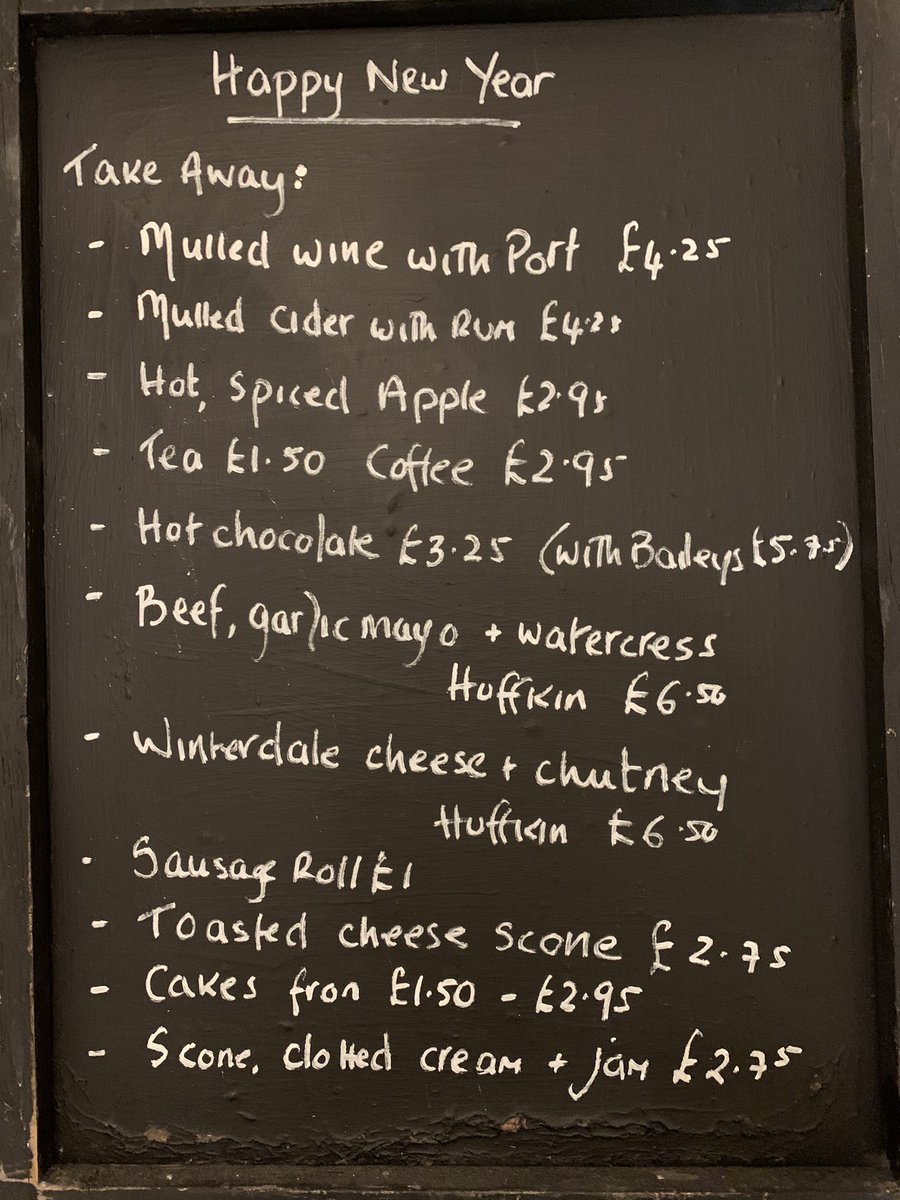 Happy New Year
Take Away:
- Mulled wine with Port £4.25
- Mulled Cider with Rum £4.25
- Hot, Spiced Apple £2.95
- Tea £1.50 Coffee £2.95
- Hot chocolate £3.25 (with Baileys £5.75)
- Beef, garlic mayo + watercress
Huffkin £6.50
- Winterdale cheese + chutney
Huffkin £6.50
- Sausage Roll £1
- Toasted cheese scone £2.75
- Cakes fron £1.50 - £2.95
- Scone, clotted cream + jam £2.75